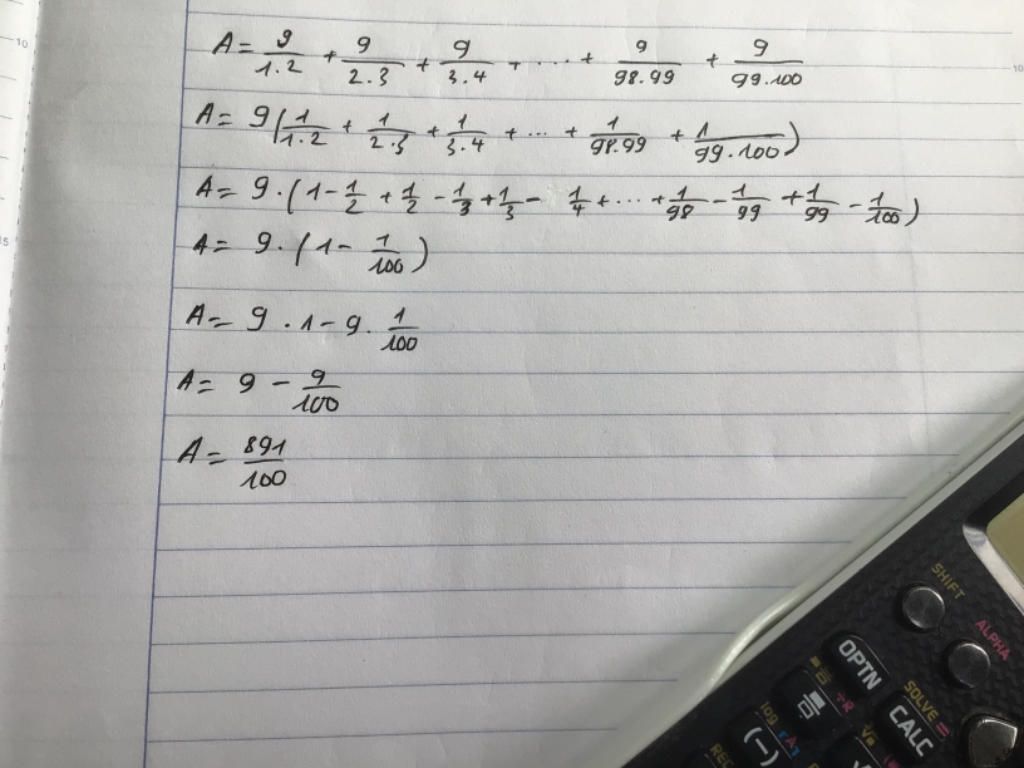 10
A = 9/1.2 + 9/2.3 + 9/3.4 + ... + 9/98.99 + 9/99.100
10
A = 9(1/1.2 + 1/2.3 + 1/3.4 + ... + 1/98.99 + 1/99.100)
A = 9.(1 - 1/2 + 1/2 - 1/3 + 1/3 - 1/4 + ... + 1/98 - 1/99 + 1/99 - 1/100)
A = 9.(1 - 1/100)
A = 9.1 - 9.1/100
A = 9 - 9/100
A = 891/100
SHIFT
ALPHA
OPTN
SOLVE =
CALC
log
(−)